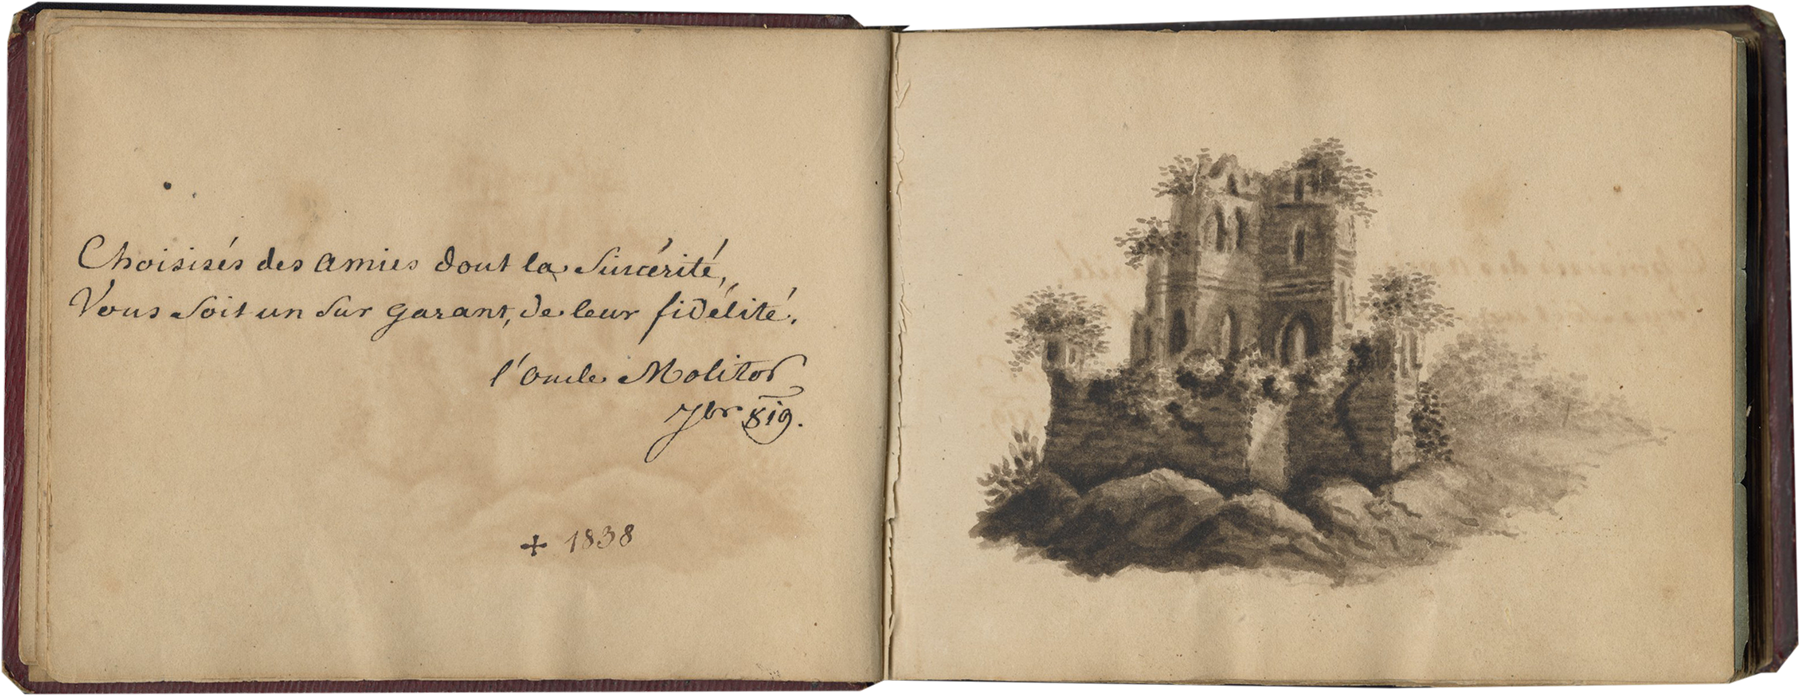 Choisisés des amies dont la sincérité,
Vous soit un sur garant, de leur fidélité.
l'oncle Molitor
7br 819.
+ 1838